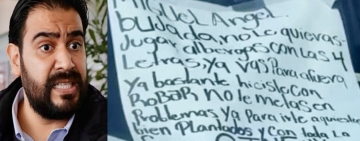 MIGUEL ANGEL
bujada, no le quieras
Jugar alberops con las 4
Letras, ya vas para afuera
Ya bastante hicistecon
RobaR no le metasen
Problemas ya Para irle aqui este
bien Plantados y con toda La